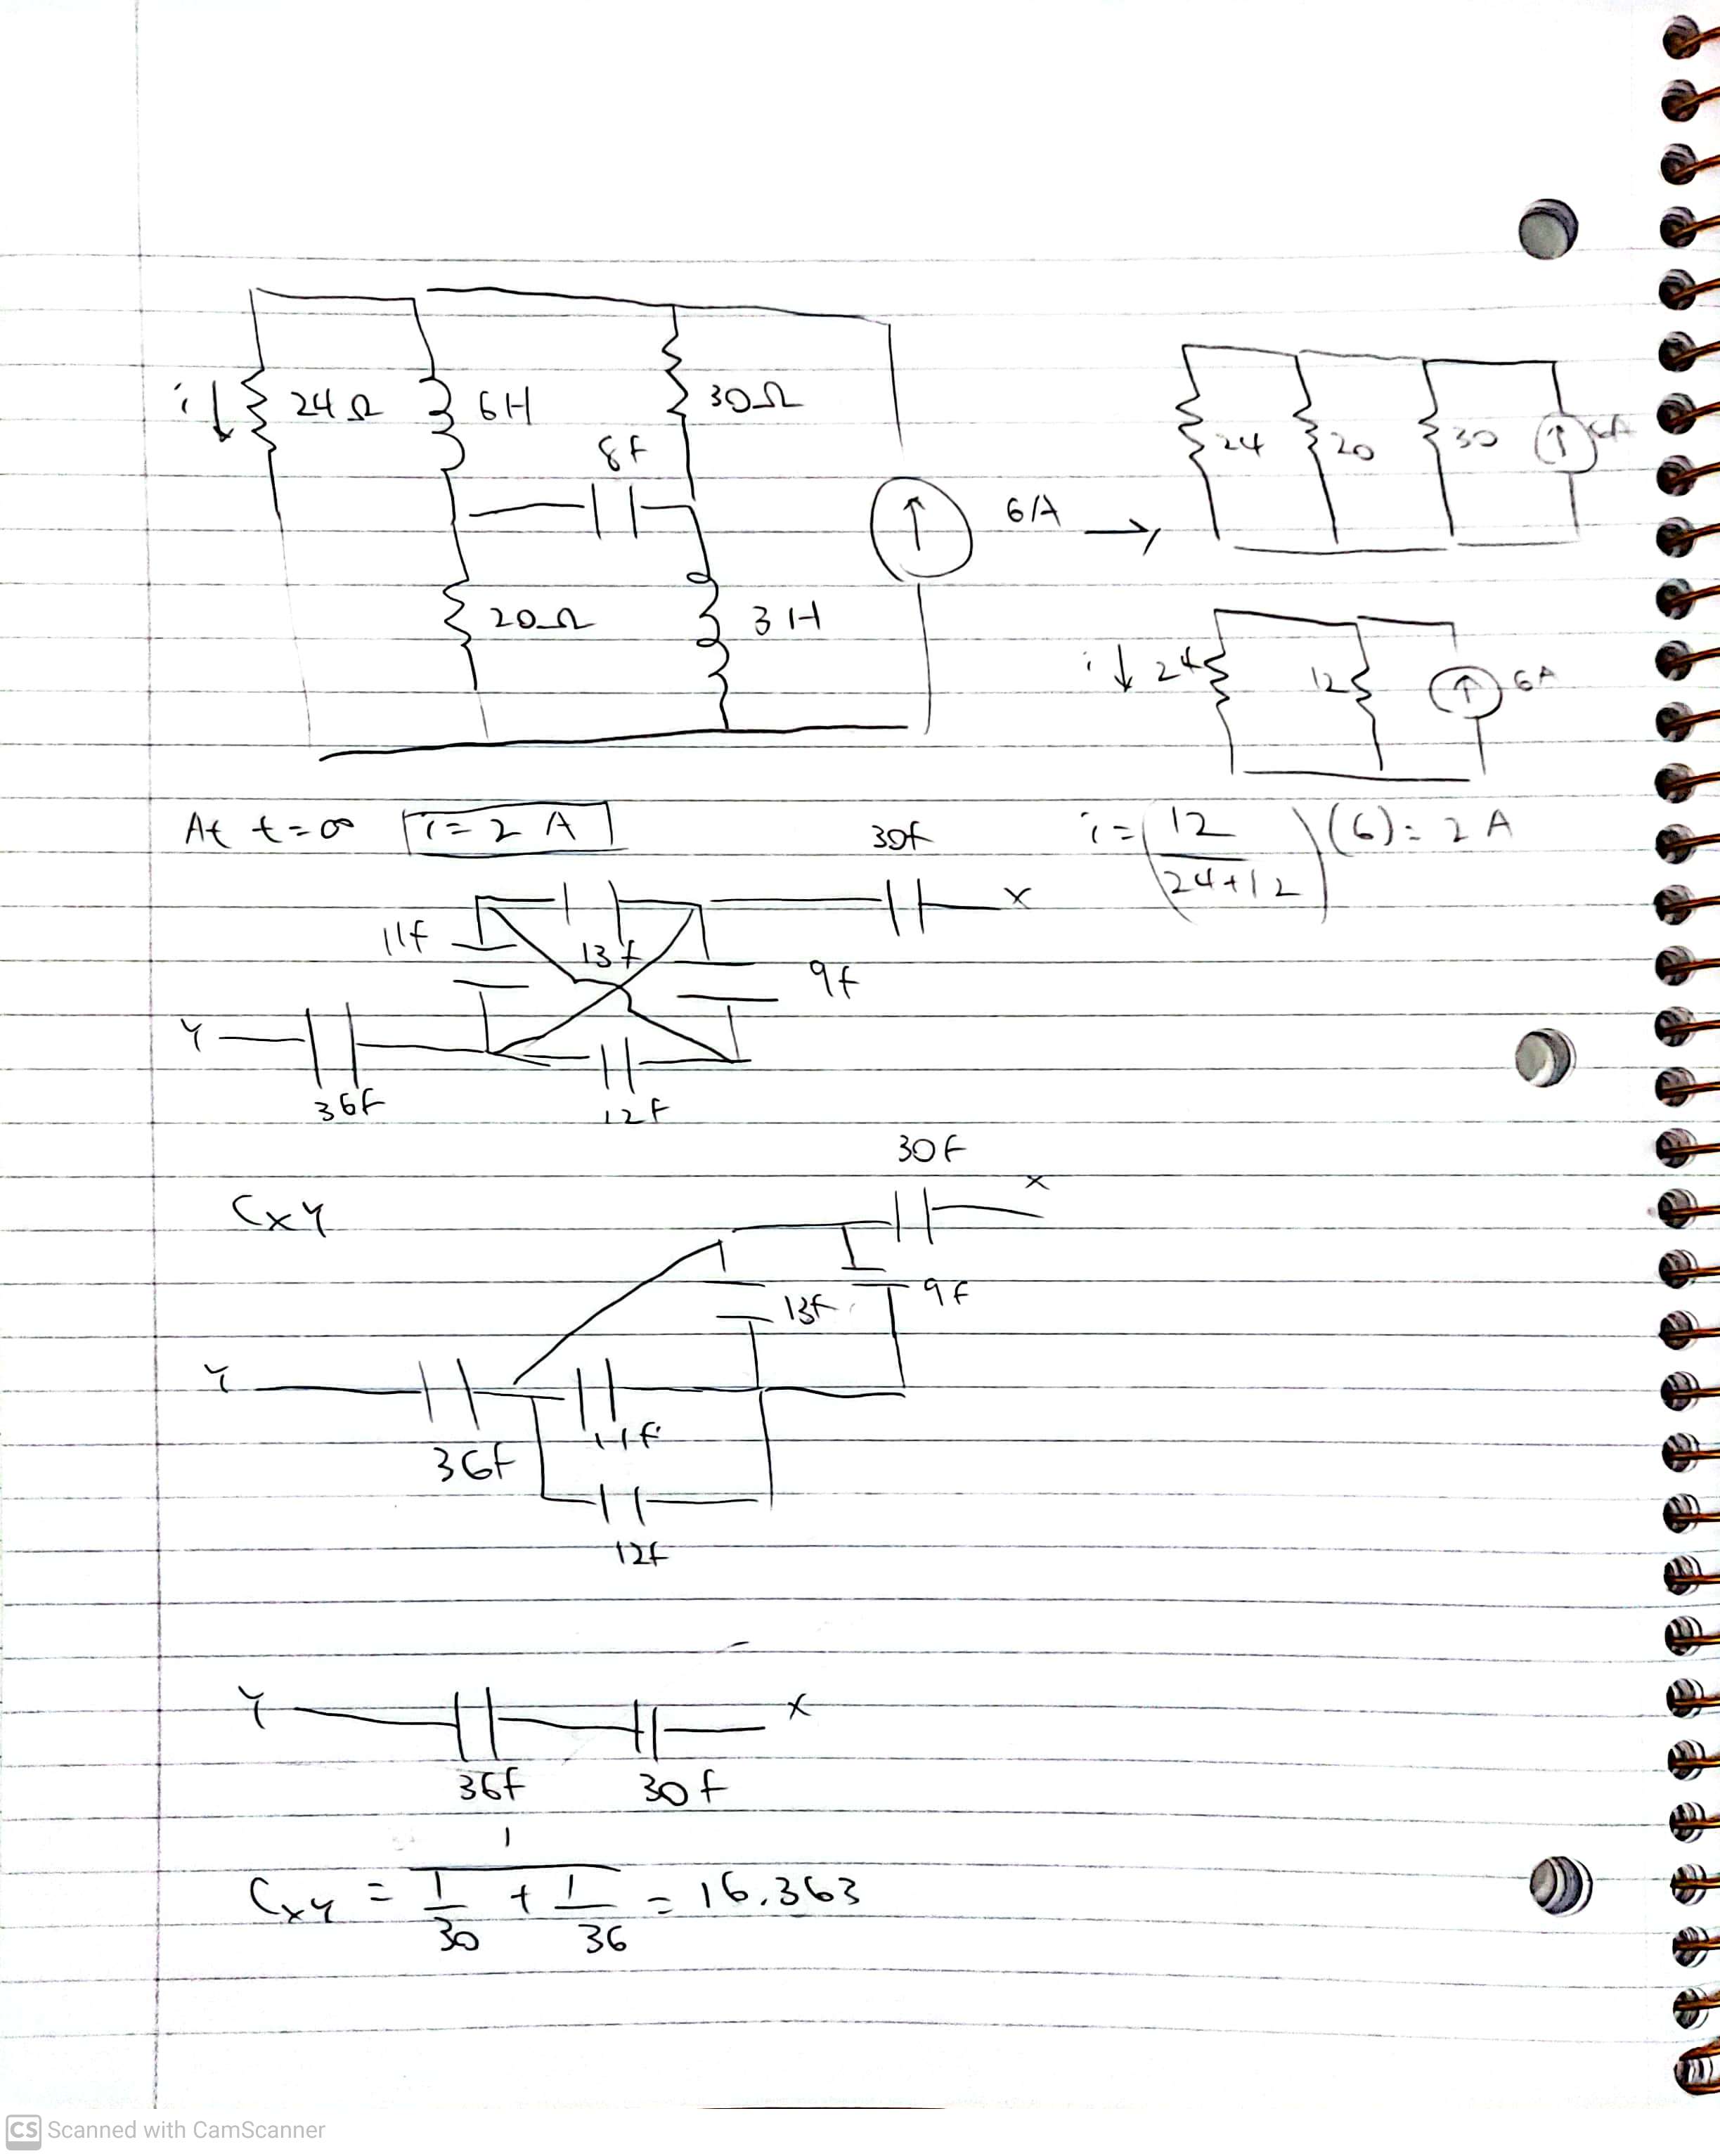 i↓ 24Ω 6H 30Ω
8f
6A →
20Ω 3H
24 20 30
i↓ 24 12 6A
At t=∞ i = 2 A
i = (12/(24+12))(6) = 2 A
30f
x
11f 13f 9f
Y
36f 12f
30f
x
Cxy
13f 9f
Y
36f 11f
12f
Y x
36f 30f
Cxy = 1/(1/30 + 1/36) = 16.363
CS Scanned with CamScanner